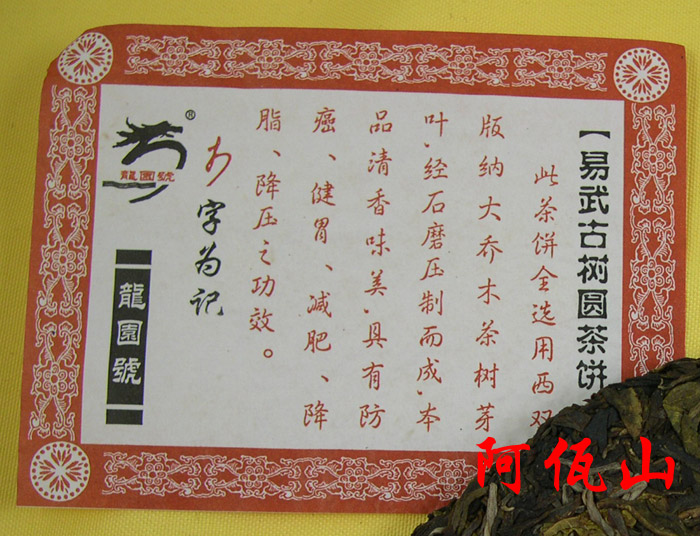 【易武古树圆茶饼
此茶饼全选用西双
版纳大乔木茶树芽
叶、经石磨压制而成、本
品清香味美、具有防
癌、健胃、减肥、降
脂、降压之功效。
字为记
®
龍園號
龍園號
阿佤山